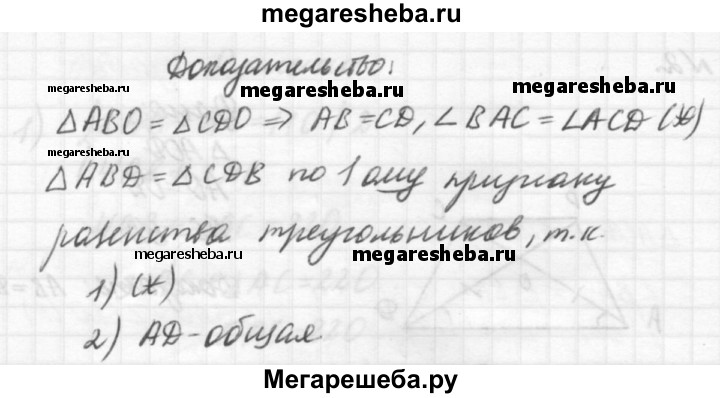 megaresheba.ru
Доказательство:
megaresheba.ru megaresheba.ru megaresheba.ru
△ABO = △CDO ⇒ AB=CD, ∠BAC = ∠ACD (*)
megaresheba.ru
△ABD = △CDB по 1ому признаку
равенства треугольников, т.к.
megaresheba.ru megaresheba.ru
1) (*)
2) AD-общая
megaresheba.ru megaresheba.ru
Мегарешеба.ру